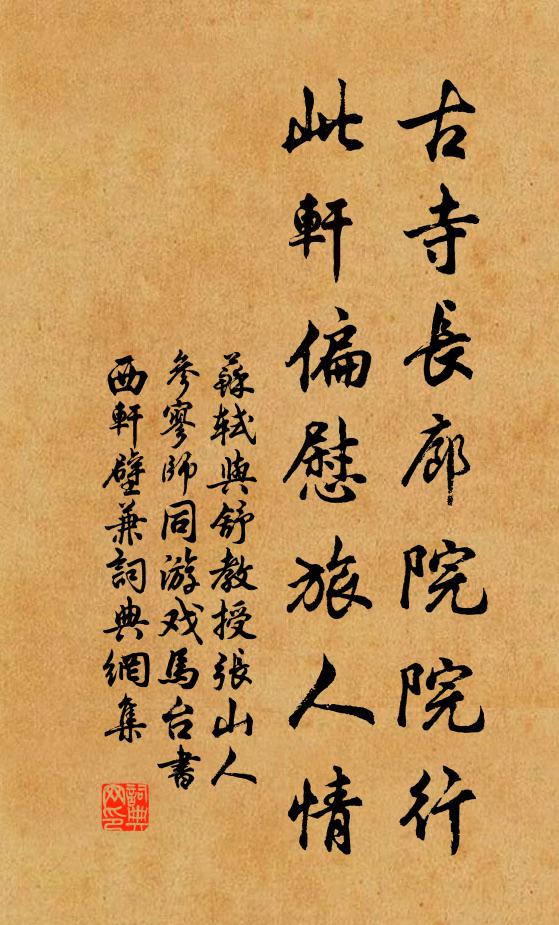 古寺長廊院院行
此軒偏慰旅人情
蘇軾與舒教授張山人
參寥師同游戏馬台書
西軒壁兼詞典網集
詞典
网印